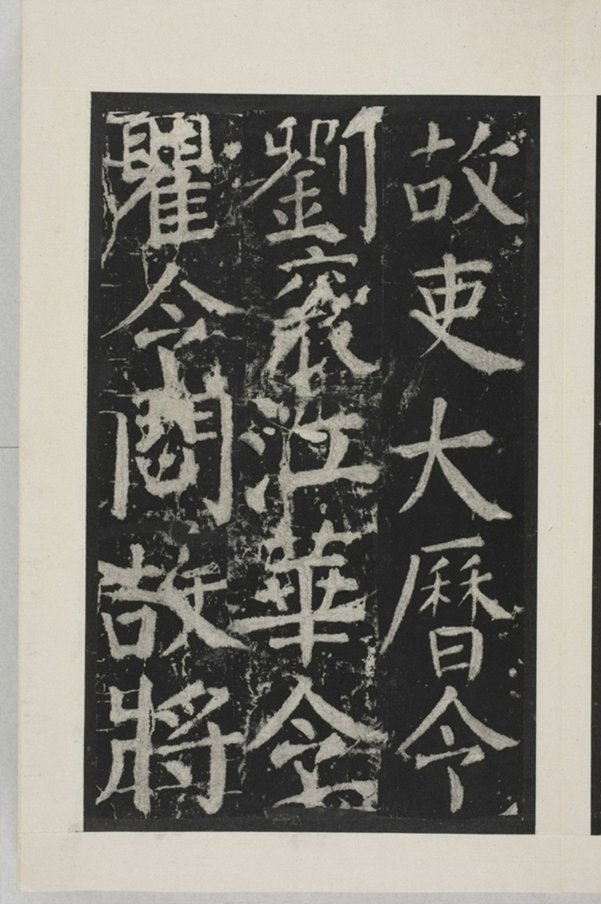 故吏大曆令
劉袞江華令
瞿令問故將